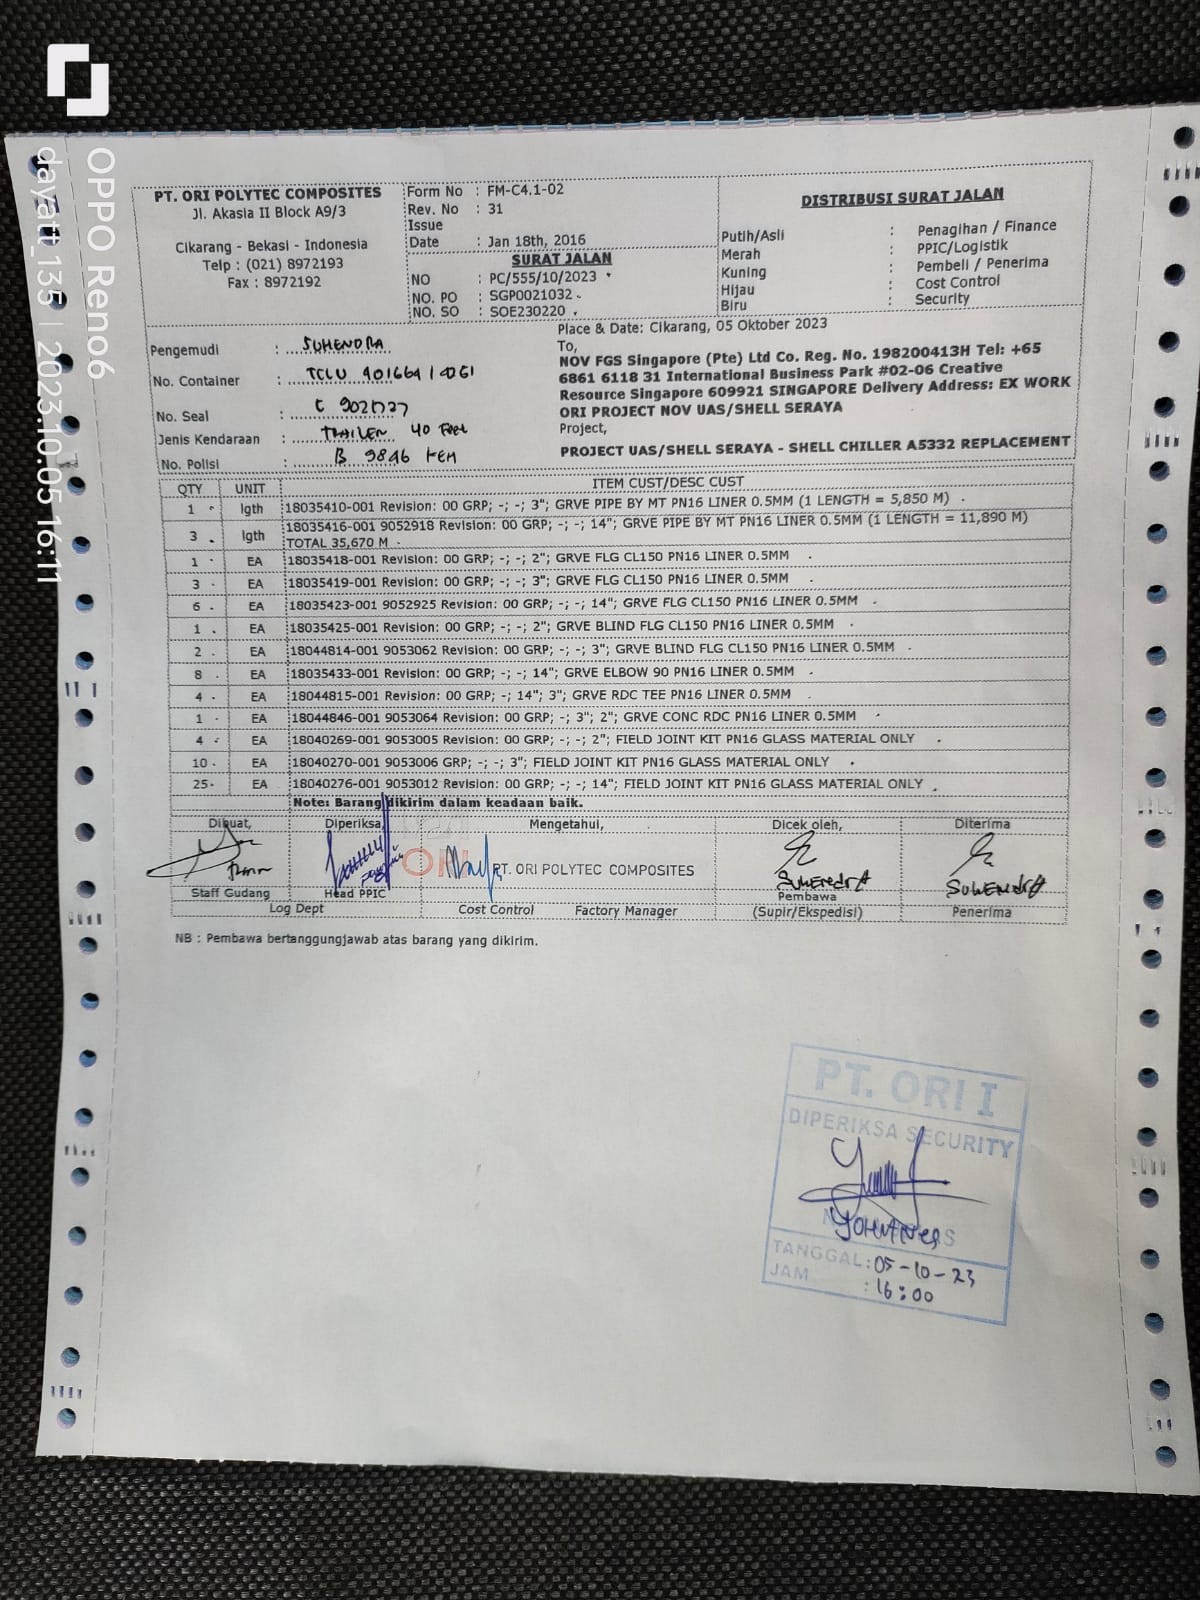 OPPO Reno6
dayatt_135 | 2023.10.05 16:11
PT. ORI POLYTEC COMPOSITES
Jl. Akasia II Block A9/3
Cikarang - Bekasi - Indonesia
Telp : (021) 8972193
Fax : 8972192
Form No : FM-C4.1-02
Rev. No : 31
Issue
Date : Jan 18th, 2016
SURAT JALAN
NO : PC/555/10/2023
NO. PO : SGP0021032
NO. SO : SOE230220
DISTRIBUSI SURAT JALAN
Putih/Asli : Penagihan / Finance
Merah : PPIC/Logistik
Kuning : Pembeli / Penerima
Hijau : Cost Control
Biru : Security
Pengemudi : SUHENDRA
No. Container : TCLU 901664 1
No. Seal :
Jenis Kendaraan : TRAILER 40 Feet
No. Polisi : B 9846
Place & Date: Cikarang, 05 Oktober 2023
To,
NOV FGS Singapore (Pte) Ltd Co. Reg. No. 198200413H Tel: +65
6861 6118 31 International Business Park #02-06 Creative
Resource Singapore 609921 SINGAPORE Delivery Address: EX WORK
ORI PROJECT NOV UAS/SHELL SERAYA
Project,
PROJECT UAS/SHELL SERAYA - SHELL CHILLER A5332 REPLACEMENT
QTY UNIT ITEM CUST/DESC CUST
1 lgth 18035410-001 Revision: 00 GRP; -; -; 3"; GRVE PIPE BY MT PN16 LINER 0.5MM (1 LENGTH = 5,850 M)
3 lgth 18035416-001 9052918 Revision: 00 GRP; -; -; 14"; GRVE PIPE BY MT PN16 LINER 0.5MM (1 LENGTH = 11,890 M)
TOTAL 35,670 M
1 EA 18035418-001 Revision: 00 GRP; -; -; 2"; GRVE FLG CL150 PN16 LINER 0.5MM
3 EA 18035419-001 Revision: 00 GRP; -; -; 3"; GRVE FLG CL150 PN16 LINER 0.5MM
6 EA 18035423-001 9052925 Revision: 00 GRP; -; -; 14"; GRVE FLG CL150 PN16 LINER 0.5MM
1 EA 18035425-001 Revision: 00 GRP; -; -; 2"; GRVE BLIND FLG CL150 PN16 LINER 0.5MM
2 EA 18044814-001 9053062 Revision: 00 GRP; -; -; 3"; GRVE BLIND FLG CL150 PN16 LINER 0.5MM
8 EA 18035433-001 Revision: 00 GRP; -; -; 14"; GRVE ELBOW 90 PN16 LINER 0.5MM
4 EA 18044815-001 Revision: 00 GRP; -; 14"; 3"; GRVE RDC TEE PN16 LINER 0.5MM
1 EA 18044846-001 9053064 Revision: 00 GRP; -; 3"; 2"; GRVE CONC RDC PN16 LINER 0.5MM
4 EA 18040269-001 9053005 Revision: 00 GRP; -; -; 2"; FIELD JOINT KIT PN16 GLASS MATERIAL ONLY
10 EA 18040270-001 9053006 GRP; -; -; 3"; FIELD JOINT KIT PN16 GLASS MATERIAL ONLY
25 EA 18040276-001 9053012 Revision: 00 GRP; -; -; 14"; FIELD JOINT KIT PN16 GLASS MATERIAL ONLY
Note: Barang dikirim dalam keadaan baik.
Dibuat, Diperiksa, Mengetahui, Dicek oleh, Diterima
ORI PT. ORI POLYTEC COMPOSITES
SUHENDRA SUHENDRA
Staff Gudang Head PPIC Pembawa
Log Dept Cost Control Factory Manager (Supir/Ekspedisi) Penerima
NB : Pembawa bertanggungjawab atas barang yang dikirim.
PT. ORI I
DIPERIKSA SECURITY
TANGGAL : 05-10-23
JAM : 16:00